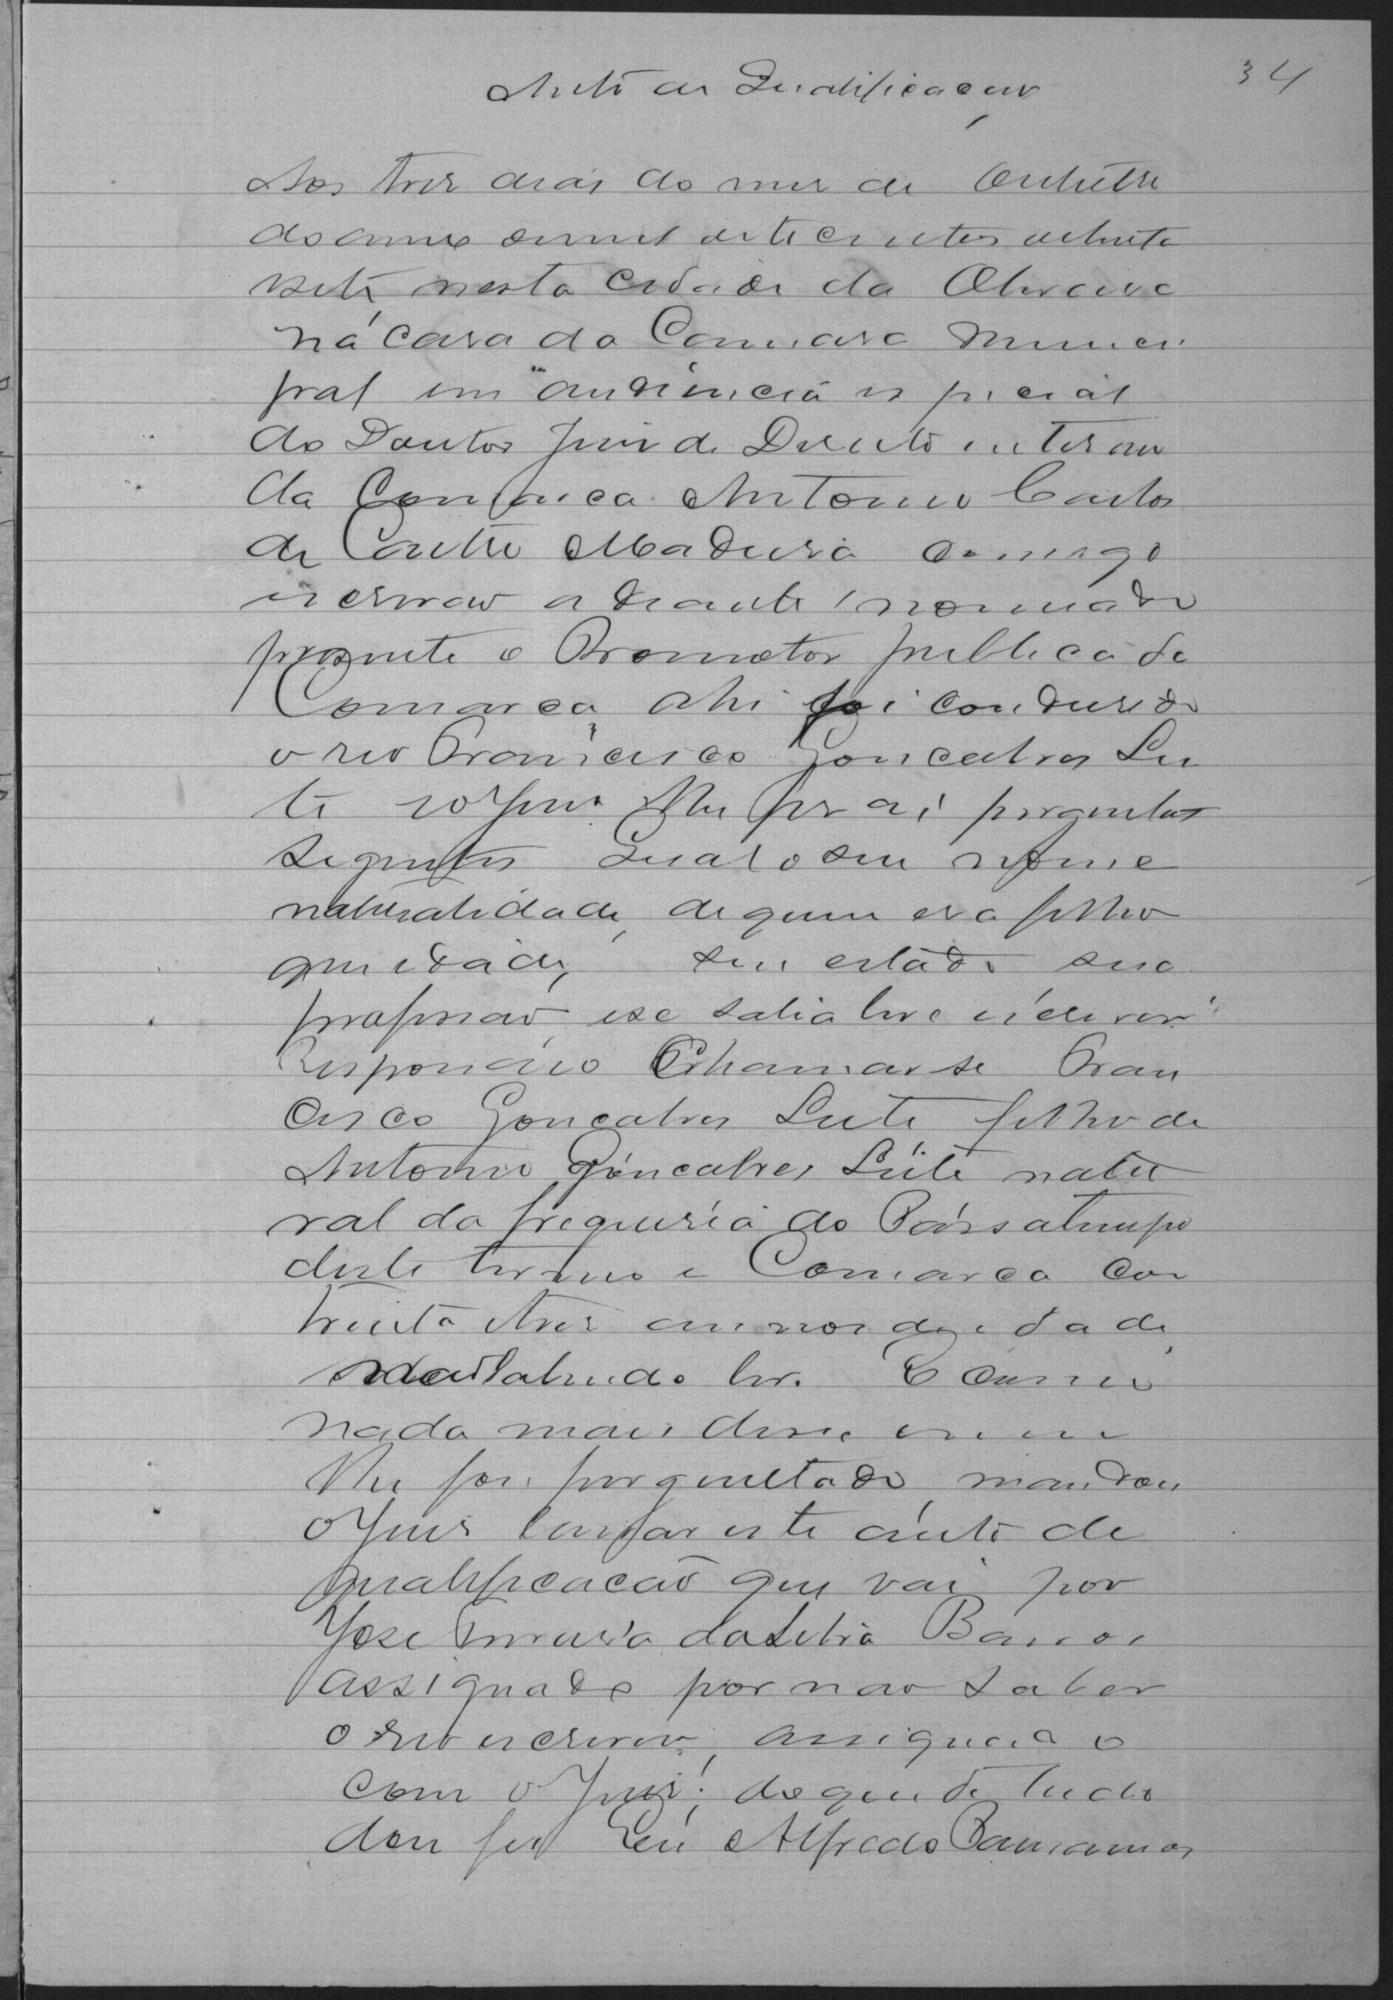 34
Auto de Qualificação
Aos tres dias do mes de Outubro
do anno de mil oitocentos oitenta
sete nesta cidade da Oliveira
na casa da Camara Munici
pal em audiencia especial
do Doutor Juiz de Direito interino
da Comarca Antonio Carlos
de Castro Madeira comigo
escrivao adiante nomeado
presente o Promotor publico da
Comarca, ahi foi condusido
o reo Francisco Goncalves Lei
te e o Juiz lhe fez as perguntas
seguintes Qual o seu nome
naturalidade, de quem era filho
que idade, seu estado sua
profissao e se sabia ler e escrever
Respondeo Chamar se Fran
cisco Goncalves Leite filho de
Antonio Goncalves Leite natu
ral da freguesia do Passatempo
deste termo e Comarca com
trinta e tres annos de idade,
ler. E como
nada mais disse e nem
lhe foi perguntado, mandou
o Juis lavrar este auto de
qualificacaõ que vai por
Jose da Silva Barros
assignado por nao saber
o reo escrever, assigna o
com o Juiz; do que de tudo
dou fé Eu Alfredo